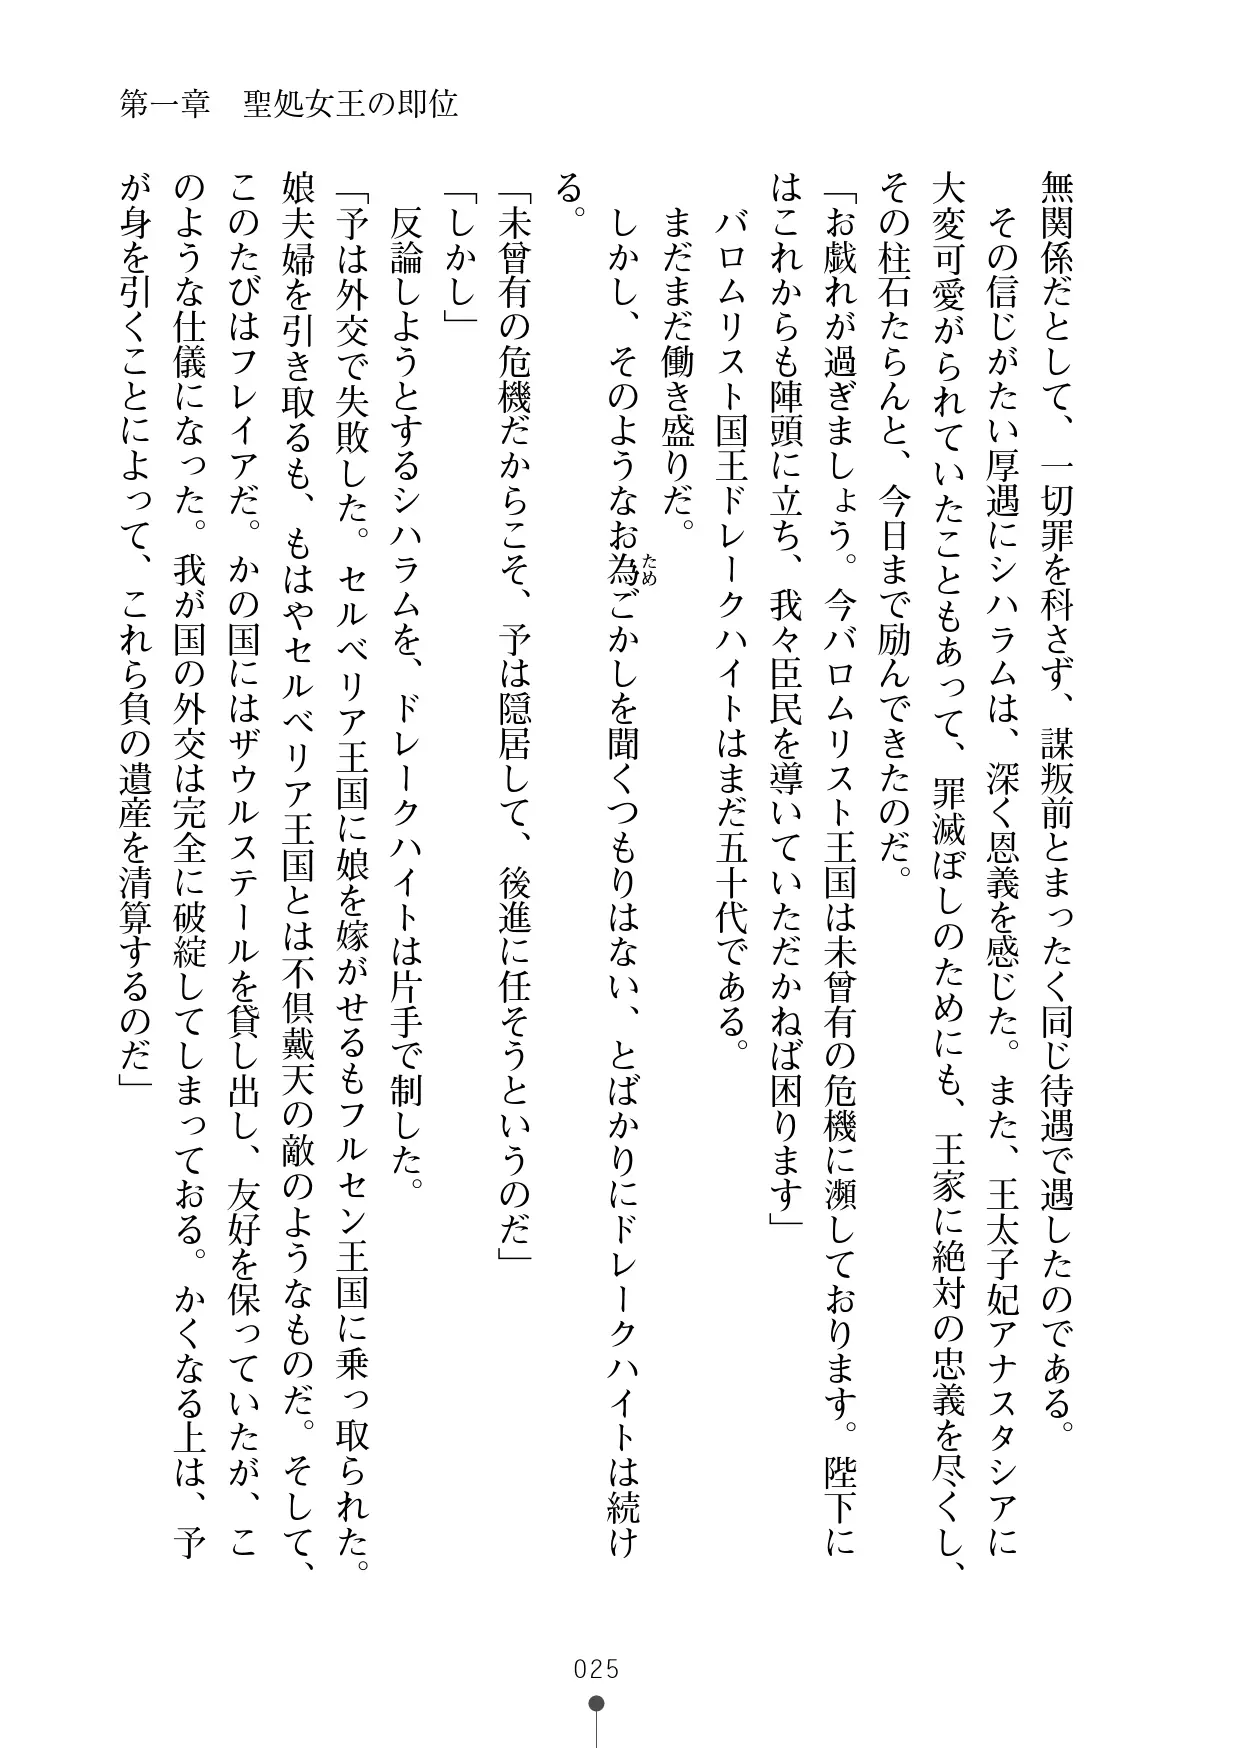 第一章　聖処女王の即位
無関係だとして、一切罪を科さず、謀叛前とまったく同じ待遇で遇したのである。
　その信じがたい厚遇にシハラムは、深く恩義を感じた。また、王太子妃アナスタシアに
大変可愛がられていたこともあって、罪滅ぼしのためにも、王家に絶対の忠義を尽くし、
その柱石たらんと、今日まで励んできたのだ。
「お戯れが過ぎましょう。今バロムリスト王国は未曾有の危機に瀕しております。陛下に
はこれからも陣頭に立ち、我々臣民を導いていただかねば困ります」
　バロムリスト国王ドレークハイトはまだ五十代である。
　まだまだ働き盛りだ。
　しかし、そのようなお為ごかしを聞くつもりはない、とばかりにドレークハイトは続け
ため
る。
「未曾有の危機だからこそ、予は隠居して、後進に任そうというのだ」
「しかし」
　反論しようとするシハラムを、ドレークハイトは片手で制した。
「予は外交で失敗した。セルベリア王国に娘を嫁がせるもフルセン王国に乗っ取られた。
娘夫婦を引き取るも、もはやセルベリア王国とは不倶戴天の敵のようなものだ。そして、
このたびはフレイアだ。かの国にはザウルステールを貸し出し、友好を保っていたが、こ
のような仕儀になった。我が国の外交は完全に破綻してしまっておる。かくなる上は、予
が身を引くことによって、これら負の遺産を清算するのだ」
025